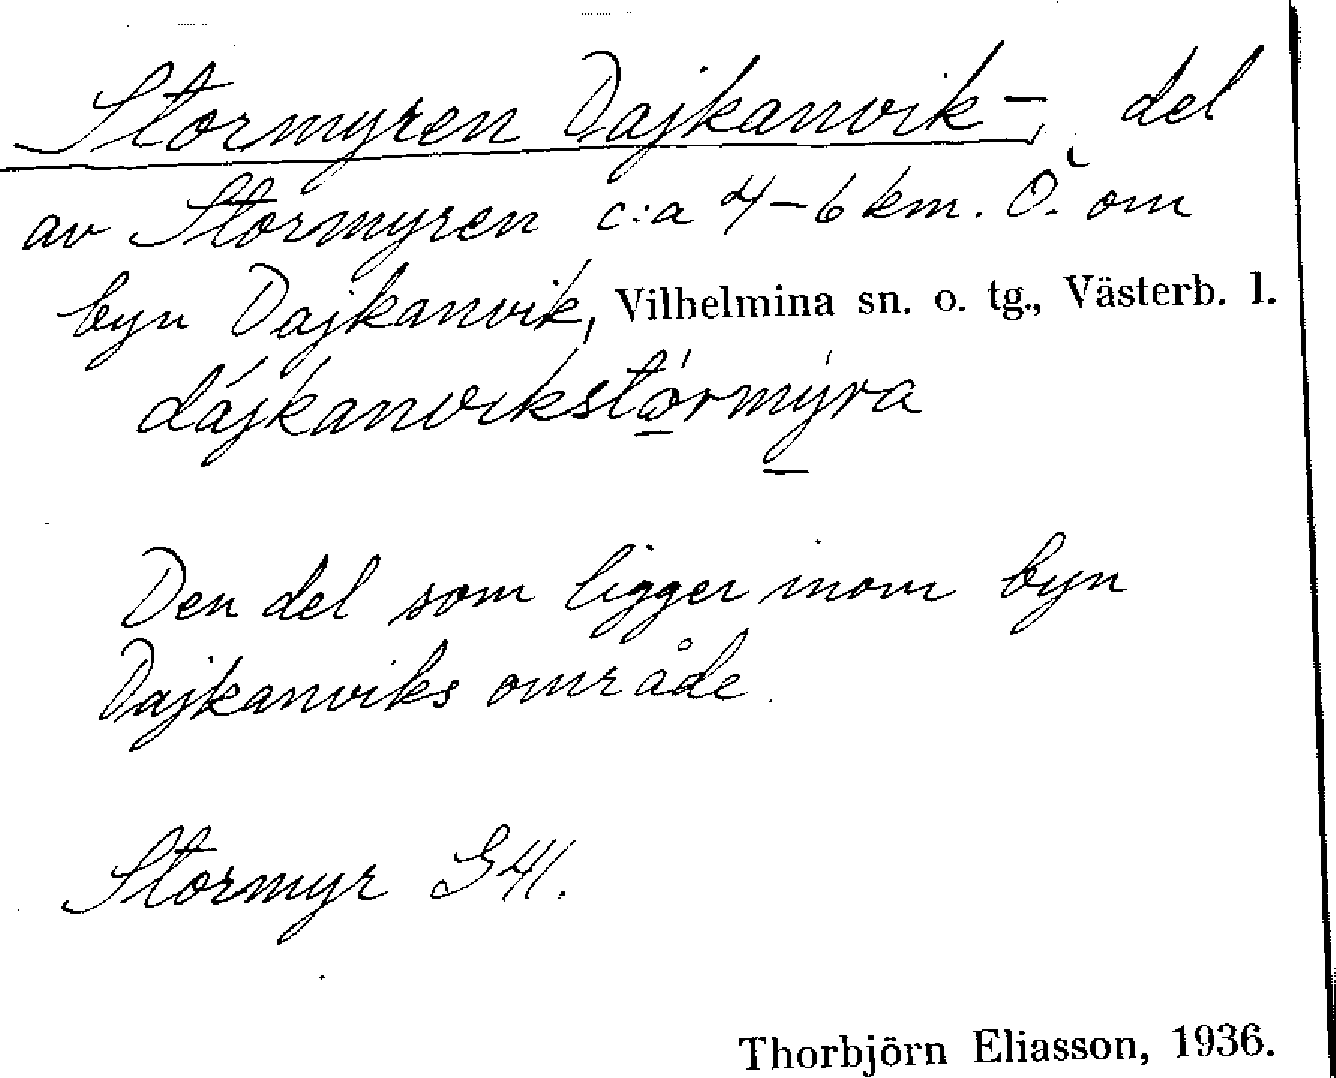 Stormyren Dajkanvik-, del
av Stormyren c:a 4-6 km. Ö. om
byn Dajkanvik, Vilhelmina sn. o. tg., Västerb. l.
dájkanvikstó̱rmý̱ra
Den del som ligger inom byn
Dajkanviks område.
Stormyr G41.
Thorbjörn Eliasson, 1936.